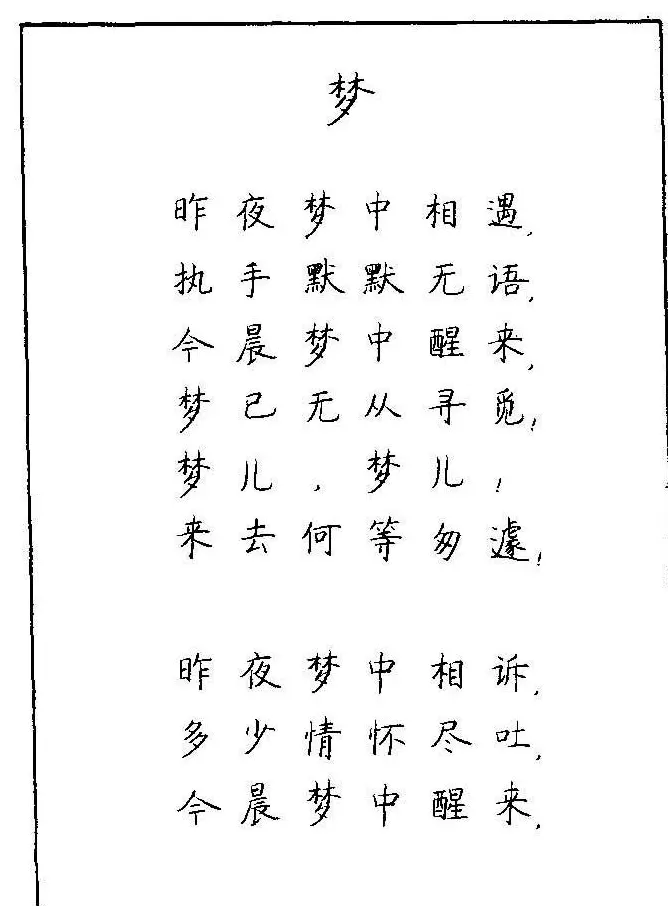 梦
昨夜梦中相遇,
执手默默无语,
今晨梦中醒来,
梦已无从寻觅!
梦儿,梦儿!
来去何等匆遽!
昨夜梦中相诉,
多少情怀尽吐,
今晨梦中醒来,